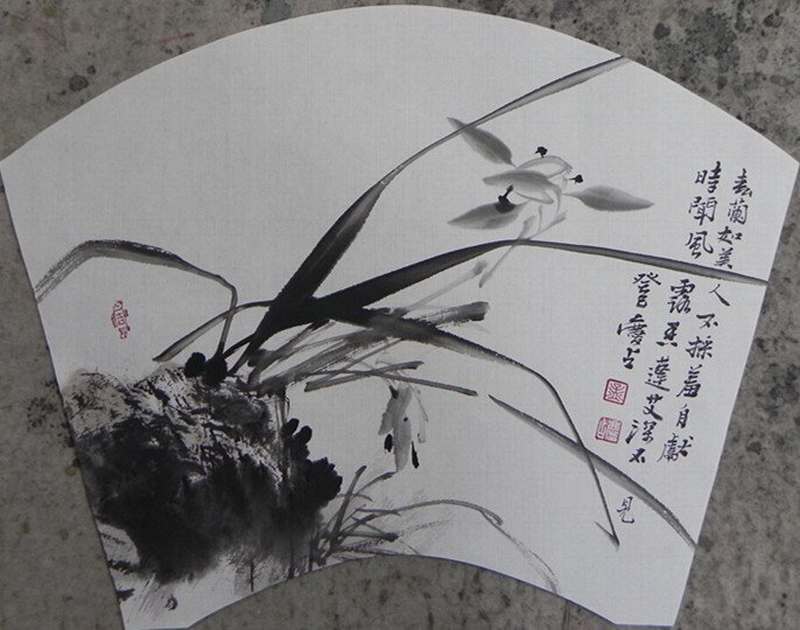 春蘭如美人不採羞自獻
時聞風露香蓬艾深不見
登慶